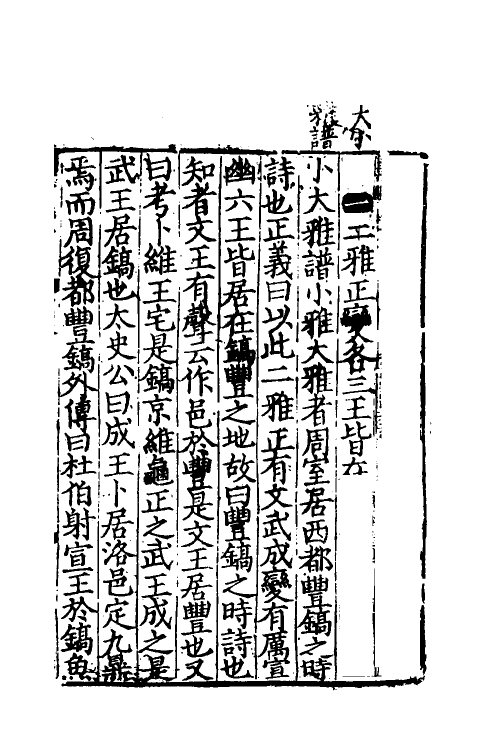 大小
雅譜
二雅正變各三王皆在
小大雅譜小雅大雅者周室居西都豐鎬之時
詩也正義曰以此二雅正有文武成變有厲宣
幽六王皆居在鎬豐之地故曰豐鎬之時詩也
知者文王有聲云作邑於豐是文王居豐也又
曰考卜維王宅是鎬京維龜正之武王成之是
武王居鎬也太史公曰成王卜居洛邑定九鼎
焉而周復都豐鎬外傳曰杜伯射宣王於鎬魚